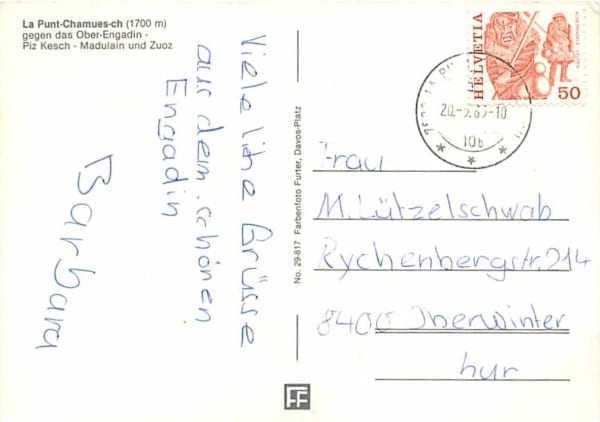 La Punt-Chamues-ch (1700 m)
gegen das Ober-Engadin -
Piz Kesch - Madulain und Zuoz
Viele libe Grüsse
aus dem schönen
Engadin
Barbara
No. 29-817 Farbenfoto Furter, Davos-Platz
HELVETIA
50
10
Frau
M. Lützelschwab
Rychenbergstr. 214
8400 Oberwinter
hur
FF